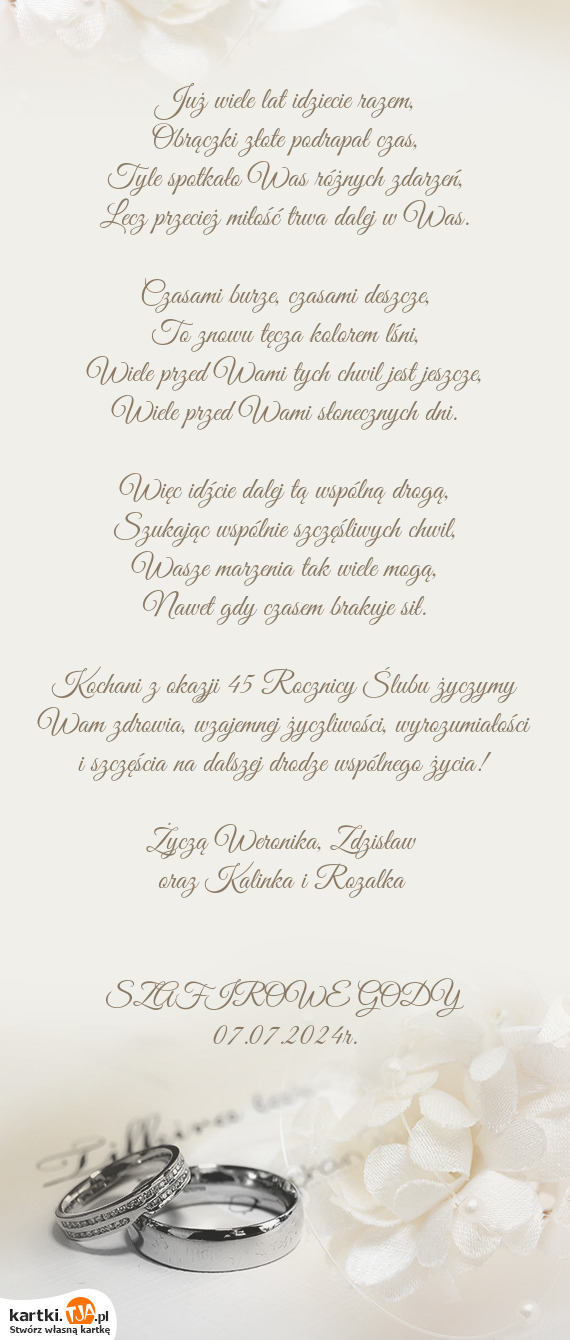 Już wiele lat idziecie razem,
Obrączki złote podrapał czas,
Tyle spotkało Was różnych zdarzeń,
Lecz przecież miłość trwa dalej w Was.
Czasami burze, czasami deszcze,
To znowu tęcza kolorem lśni,
Wiele przed Wami tych chwil jest jeszcze,
Wiele przed Wami słonecznych dni.
Więc idźcie dalej tą wspólną drogą,
Szukając wspólnie szczęśliwych chwil,
Wasze marzenia tak wiele mogą,
Nawet gdy czasem brakuje sił.
Kochani z okazji 45 Rocznicy Ślubu życzymy
Wam zdrowia, wzajemnej życzliwości, wyrozumiałości
i szczęścia na dalszej drodze wspólnego życia!
Życzą Weronika, Zdzisław
oraz Kalinka i Rozalka
SZAFIROWE GODY
07.07.2024r.
kartki.TJA.pl
Stwórz własną kartkę